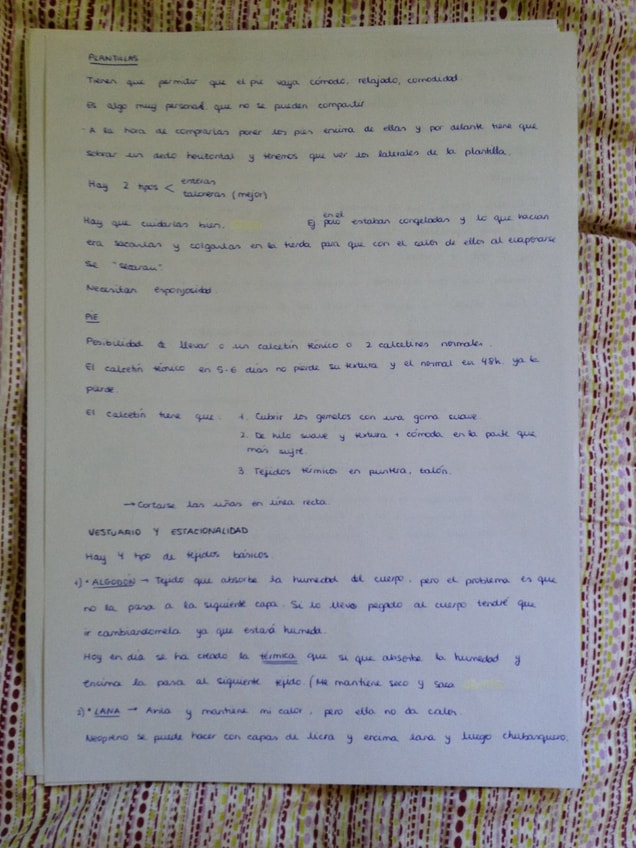 PLANTILLAS
Tienen que permitir que el pie vaya cómodo, relajado, comodidad.
Es algo muy personal que no se pueden compartir
- A la hora de comprarlas poner los pies encima de ellas y por delante tiene que
sobrar un dedo horizontal y tenemos que ver los laterales de la plantilla.
Hay 2 tipos < enteras
taloneras (mejor)
Hay que cuidarlas bien. Ej en el polo estaban congeladas y lo que hacían
era sacarlas y colgarlas en la tienda para que con el calor de ellos al evaporarse
se "secaran".
Necesitan esponjosidad.
PIE
Posibilidad de llevar o un calcetín técnico o 2 calcetines normales.
El calcetín técnico en 5-6 días no pierde su textura y el normal en 48h. ya la
pierde.
El calcetín tiene que: 1. Cubrir los gemelos con una goma suave.
2. De hilo suave y textura + cómoda en la parte que
más sufre.
3. Tejidos térmicos en puntera, talón.
→ Cortarse las uñas en línea recta.
VESTUARIO Y ESTACIONALIDAD
Hay 4 tipo de tejidos básicos.
1) • ALGODÓN → Tejido que absorbe la humedad del cuerpo, pero el problema es que
no la pasa a la siguiente capa. Si lo llevo pegado al cuerpo tendré que
ir cambiandomela ya que estará humeda.
Hoy en día se ha creado la térmica que si que absorbe la humedad y
encima la pasa al siguiente tejido. (Me mantiene seco y saca
2) • LANA → Aisla y mantiene mi calor, pero ella no da calor.
Neopreno se puede hacer con capas de licra y encima lana y luego chubasquero.